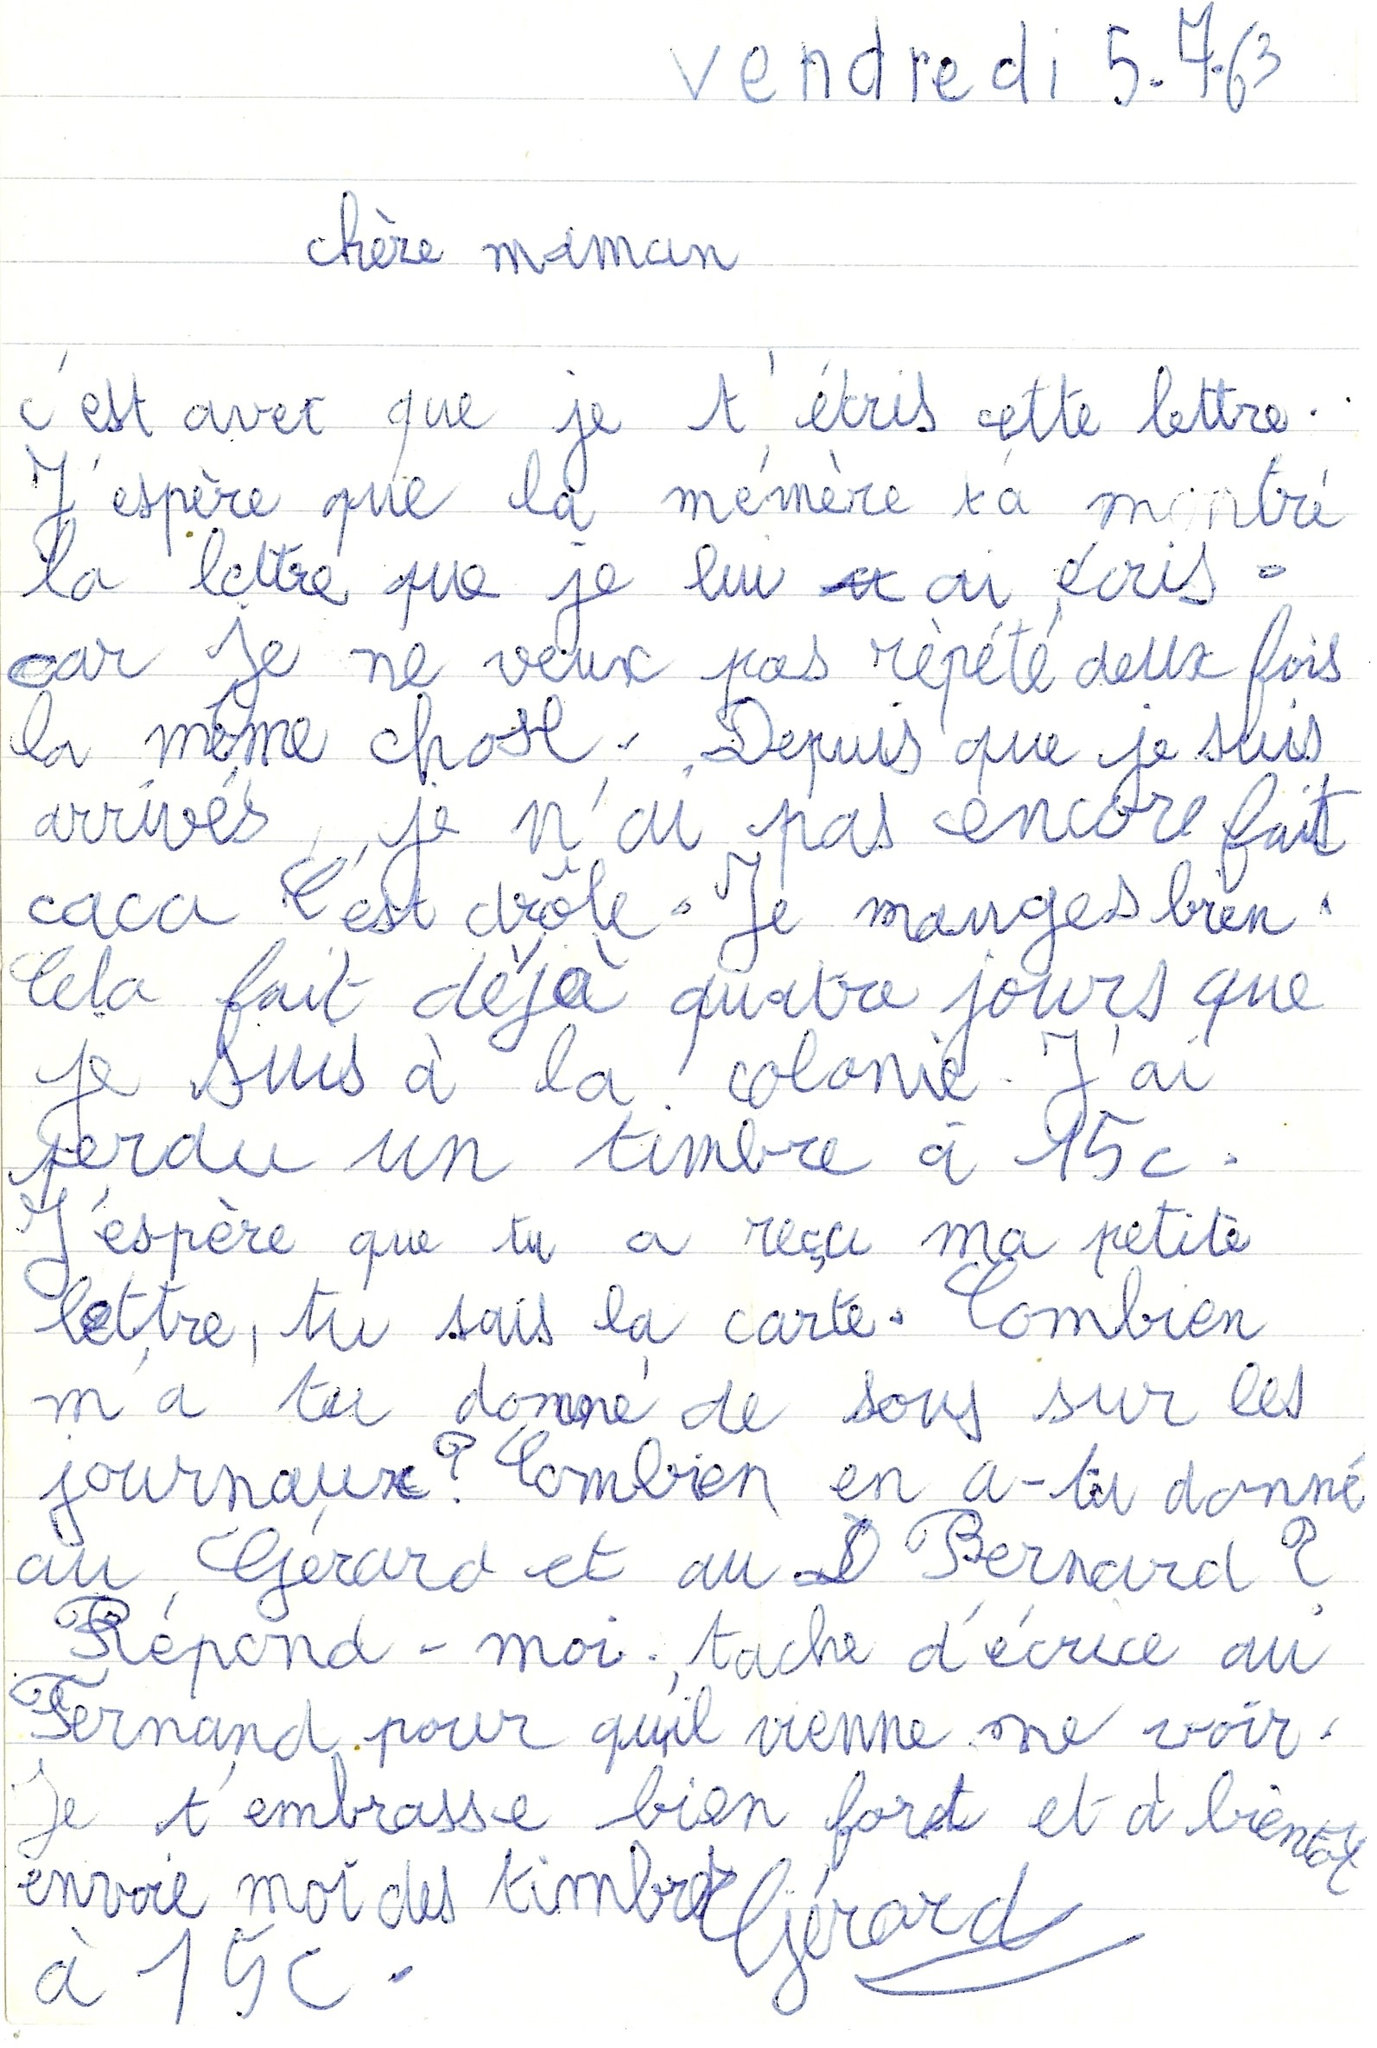 vendredi 5.7.63
chère maman
c'est avec que je t'étris cette lettre.
J'espère que la mémère t'a montré
la lettre que je lui ai écris.
car je ne veux pas rèpété deux fois
la même chose. Depuis que je suis
arrivés, je n'ai pas encore fait
caca C'est drôle. Je manges bien.
Cela fait déjà quatre jours que
je suis à la colonie. J'ai
perdu un timbre à 15c.
J'espère que tu a reçu ma petite
lettre, tu sais la carte. Combien
m'a tu donné de sous sur les
journaux? Combien en a-tu donné
au Gérard et au Bernard?
Répond-moi. tache d'écrice au
Fernand pour qu'il vienne me voir.
Je t'embrasse bien fort et à bientôt
envoie moi des timbres Gérard
à 15c.